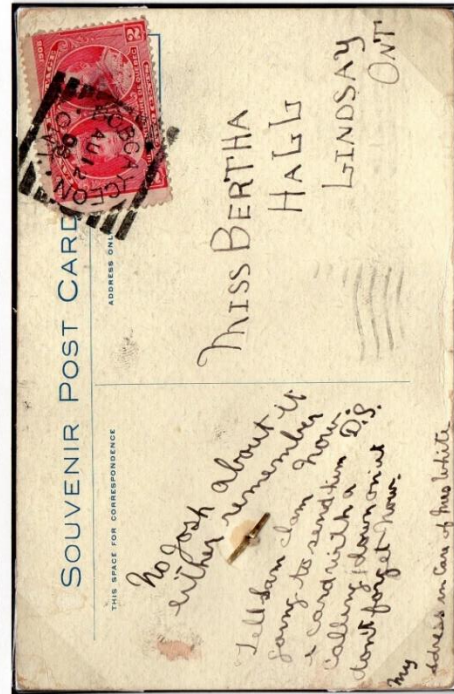 SOUVENIR POST CARD
THIS SPACE FOR CORRESPONDENCE
ADDRESS ONLY
1908
2
BOBCAYGEON
AU 12
08
No Josh about it
either remember
Tell Sam clam how
going to send him D.S.
a card with a
calling down on it
don't forget now.
My
adress in Care of Mrs White
MISS BERTHA
HALL
LINDSAY
ONT